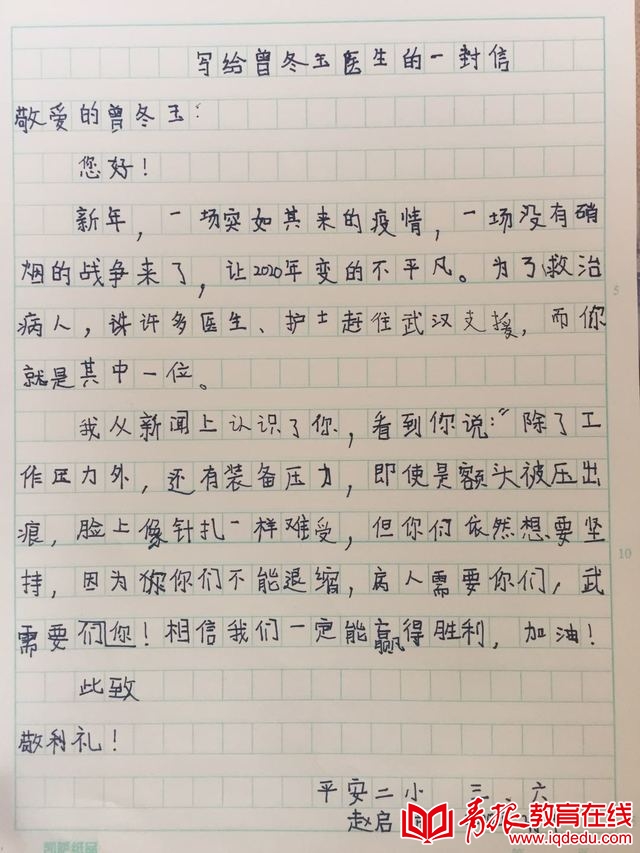 写给曾冬玉医生的一封信
敬爱的曾冬玉：
您好！
新年，一场突如其来的疫情，一场没有硝
烟的战争来了，让2020年变的不平凡。为了救治
病人，许多医生、护士赶往武汉支援，而你
就是其中一位。
我从新闻上认识了你，看到你说："除了工
作压力外，还有装备压力，即使是额头被压出
痕，脸上像针扎一样难受，但你们依然想要坚
持，因为你你们不能退缩，病人需要你们，武
需要们您！相信我们一定能赢得胜利，加油！
此致
敬利礼！
平安二小 三、六
赵启
青报教育在线
www.iqdedu.com
5
10